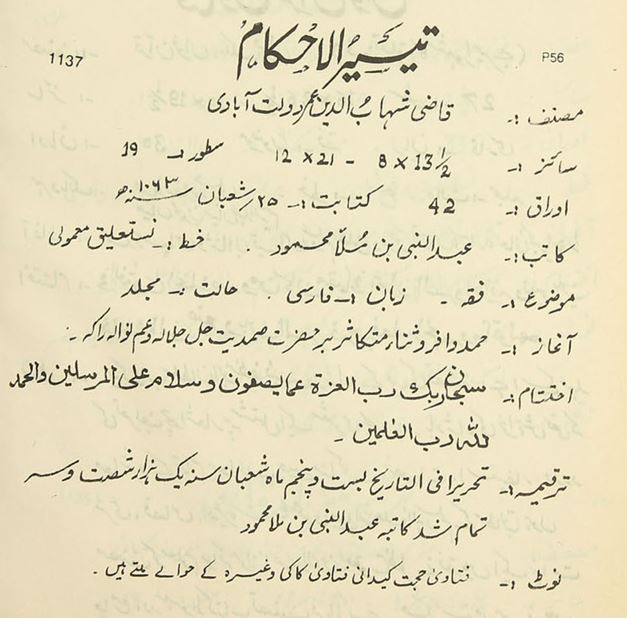 1137 تیسیر الاحکام P56
مصنف :۔ قاضی شہاب الدین عمر دولت آبادی
سائز :۔ 8 x 13½ - 12 x 21 سطور :۔ 19
اوراق :۔ 42 کتابت :۔ ۲۵/شعبان ۱۰۶۳ھ
کاتب :۔ عبد النبی بن ملّا محمود . خط :۔ نستعلیق معمولی
موضوع :۔ فقہ ۔ زبان :۔ فارسی . حالت :۔ مجلد
آغاز :۔ حمد وافر و ثناء متکاثر بر حضرت صمدیت جل جلالہ و عم نوالہ راکہ ۔
اختتام :۔ سبحان ربک رب العزة عما یصفون و سلام علی المرسلین والحمد
للہ رب العٰلمین ۔
ترقیمہ :۔ تحریرا فی التاریخ بست و پنجم ماہ شعبان سنہ یک ہزار شصت و سہ
تمام شد کاتبہ عبد النبی بن ملا محمود
نوٹ :۔ فتاویٰ حجت کیدانی فتاویٰ کاکی وغیرہ کے حوالے ملتے ہیں ۔